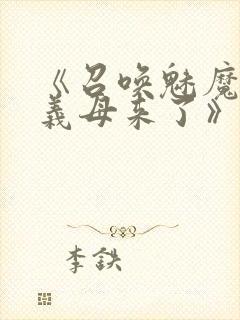 《召唤魅魔
義母来了》
李鉄